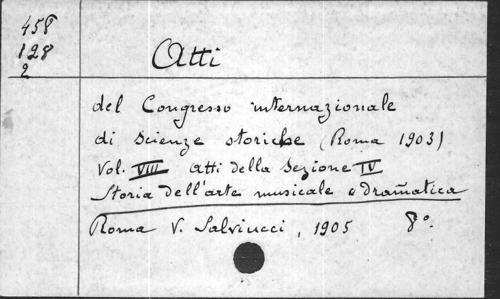 458
128
2
Atti
del Congresso internazionale
di Scienze storiche (Roma 1903)
Vol. VIII Atti della Sezione IV
Storia dell'arte musicale e dram̃atica
Roma V. Salviucci, 1905 8°.